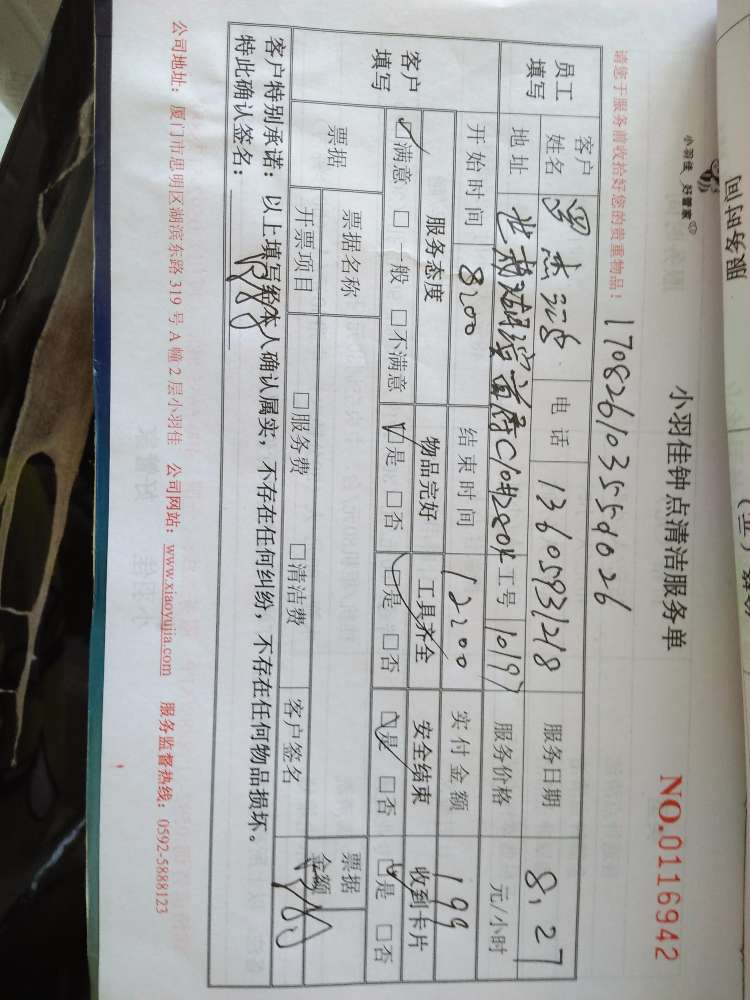 服务时间
小羽佳 好管家
小羽佳钟点清洁服务单
NO.0116942
请您于服务前收拾好您的贵重物品！
170826103555026
员工填写
客户姓名
罗
电话 13605931218
服务日期 8.27
地址
C1042804
工号 10197
服务价格
元/小时
客户填写
开始时间 8:00
结束时间 12:00
实付金额 199
服务态度
物品完好
工具齐全
安全结束
收到卡片
☑满意 □一般 □不满意
☑是 □否
☑是 □否
☑是 □否
☑是 □否
票据
票据名称
票据金额
开票项目
□服务费
□清洁费
客户签名
客户特别承诺：以上填写经本人确认属实，不存在任何纠纷，不存在任何物品损坏。
特此确认签名：
公司地址：厦门市思明区湖滨东路 319 号 A 幢 2 层小羽佳 公司网站：www.xiaoyujia.com 服务监督热线：0592-5888123